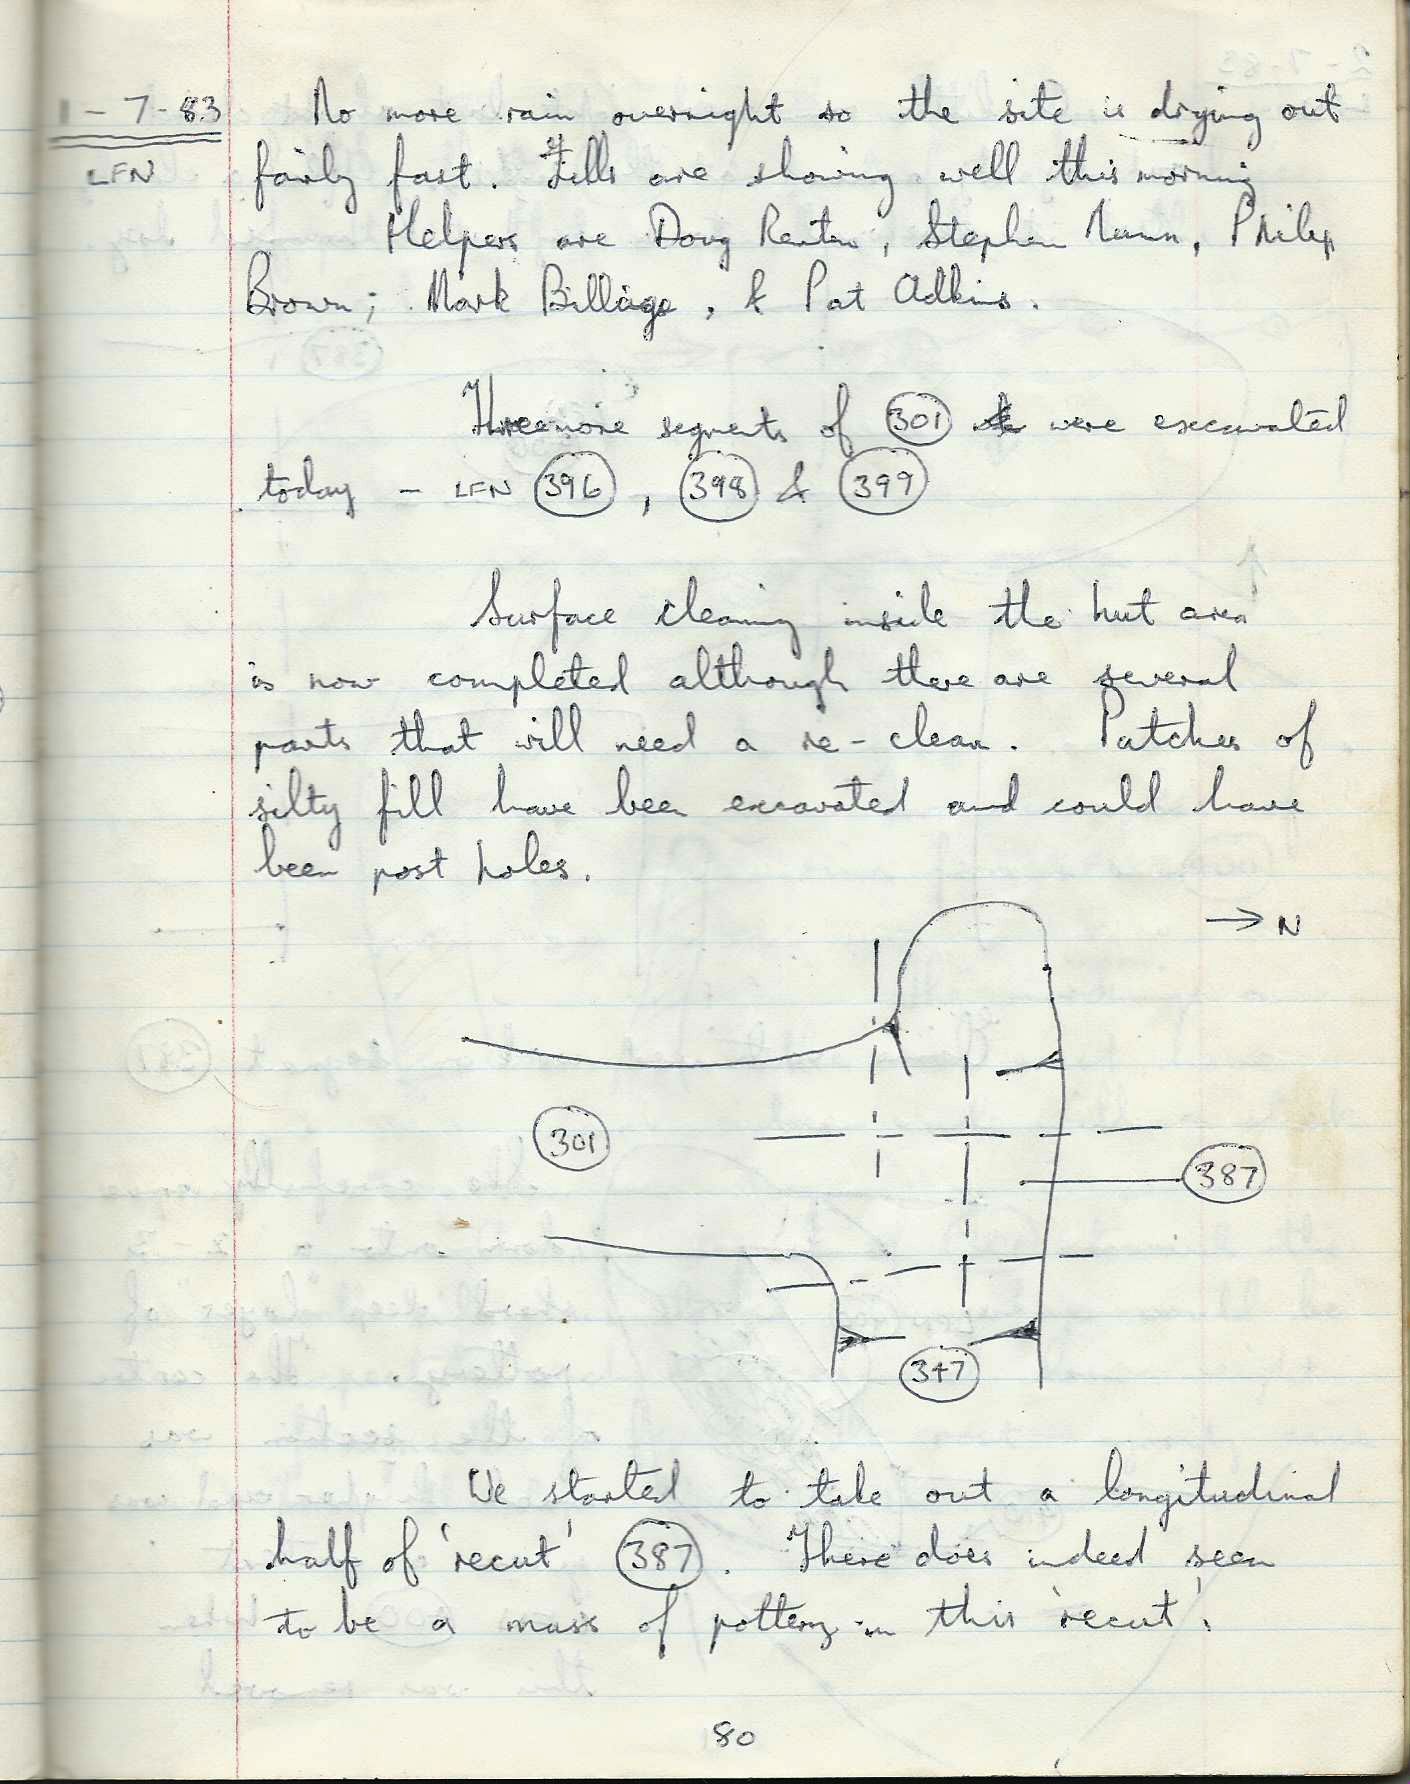 1-7-83 No more rain overnight so the site is drying out
LFN fairly fast. Fills are showing well this morning
Helpers are Doug Renton, Stephen Nunn, Philip
Brown; Mark Billings, & Pat Adkins.
Three more segments of 301 were excavated
today - LFN 396, 398 & 399
Surface cleaning inside the hut area
is now completed although there are several
parts that will need a re-clean. Patches of
silty fill have been excavated and could have
been post holes.
→ N
301
387
347
We started to take out a longitudinal
half of 'recut' 387. There does indeed seem
to be a mass of pottery in this 'recut'.
80